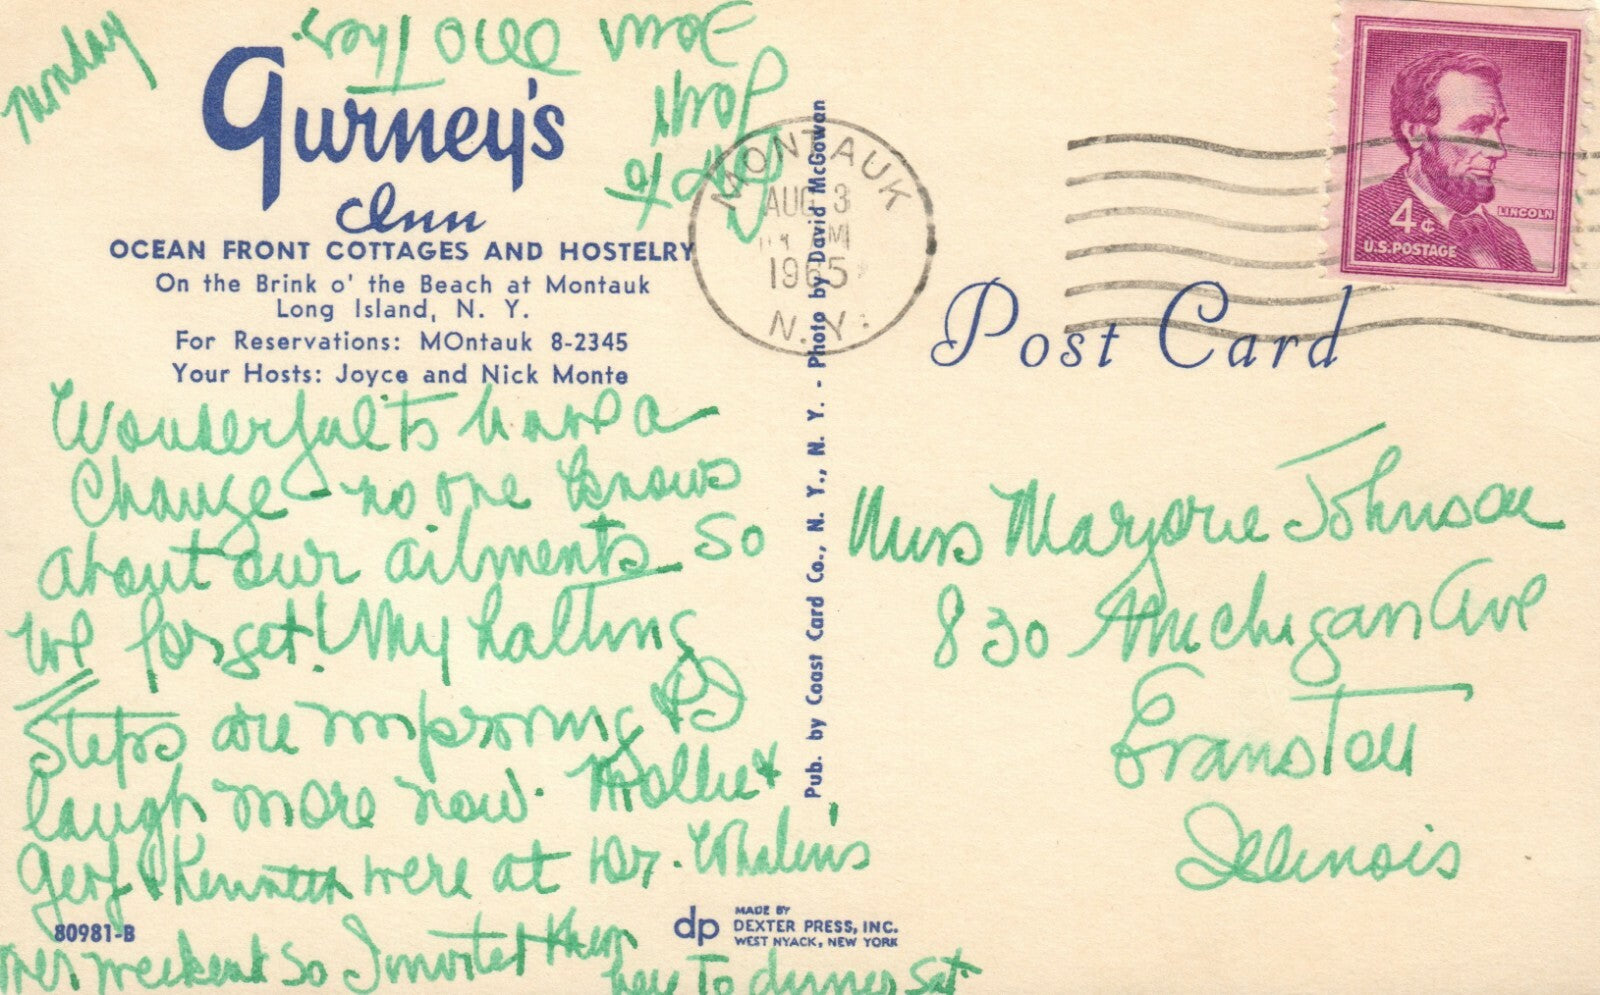 Monday
Gurney's
Inn
OCEAN FRONT COTTAGES AND HOSTELRY
On the Brink o' the Beach at Montauk
Long Island, N. Y.
For Reservations: MOntauk 8-2345
Your Hosts: Joyce and Nick Monte
Wonderful to have a
change no one knows
about our ailments so
we forget! My halting
steps are improving &
laugh more now. Mollie &
Gert & Kenneth were at Dr. Whalen's
over weekend so I invited them
here to dinner Sat.
80981-B
MONTAUK
AUG 3
AM
1965
N.Y.
Pub. by Coast Card Co., N. Y., N. Y. - Photo by David McGowan
dp
MADE BY
DEXTER PRESS, INC.
WEST NYACK, NEW YORK
LINCOLN
4¢
U.S. POSTAGE
Post Card
Miss Marjorie Johnson
830 Michigan Ave
Evanston
Illinois